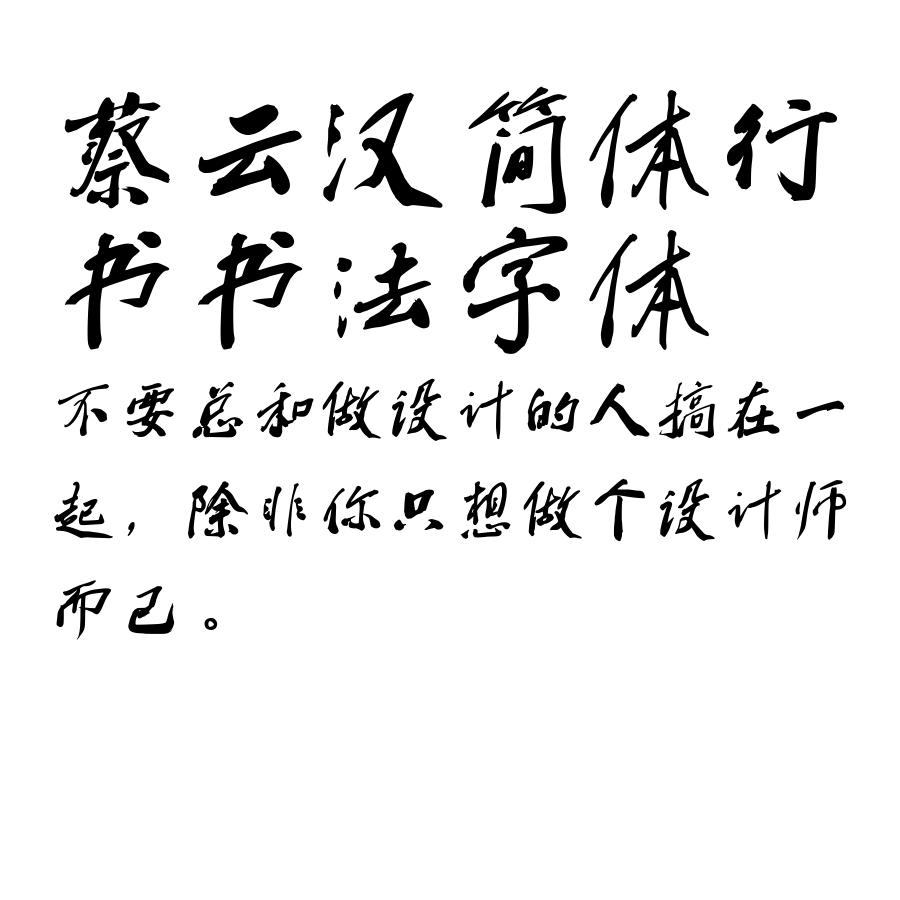 蔡云汉简体行
书书法字体
不要总和做设计的人搞在一
起，除非你只想做个设计师
而已。